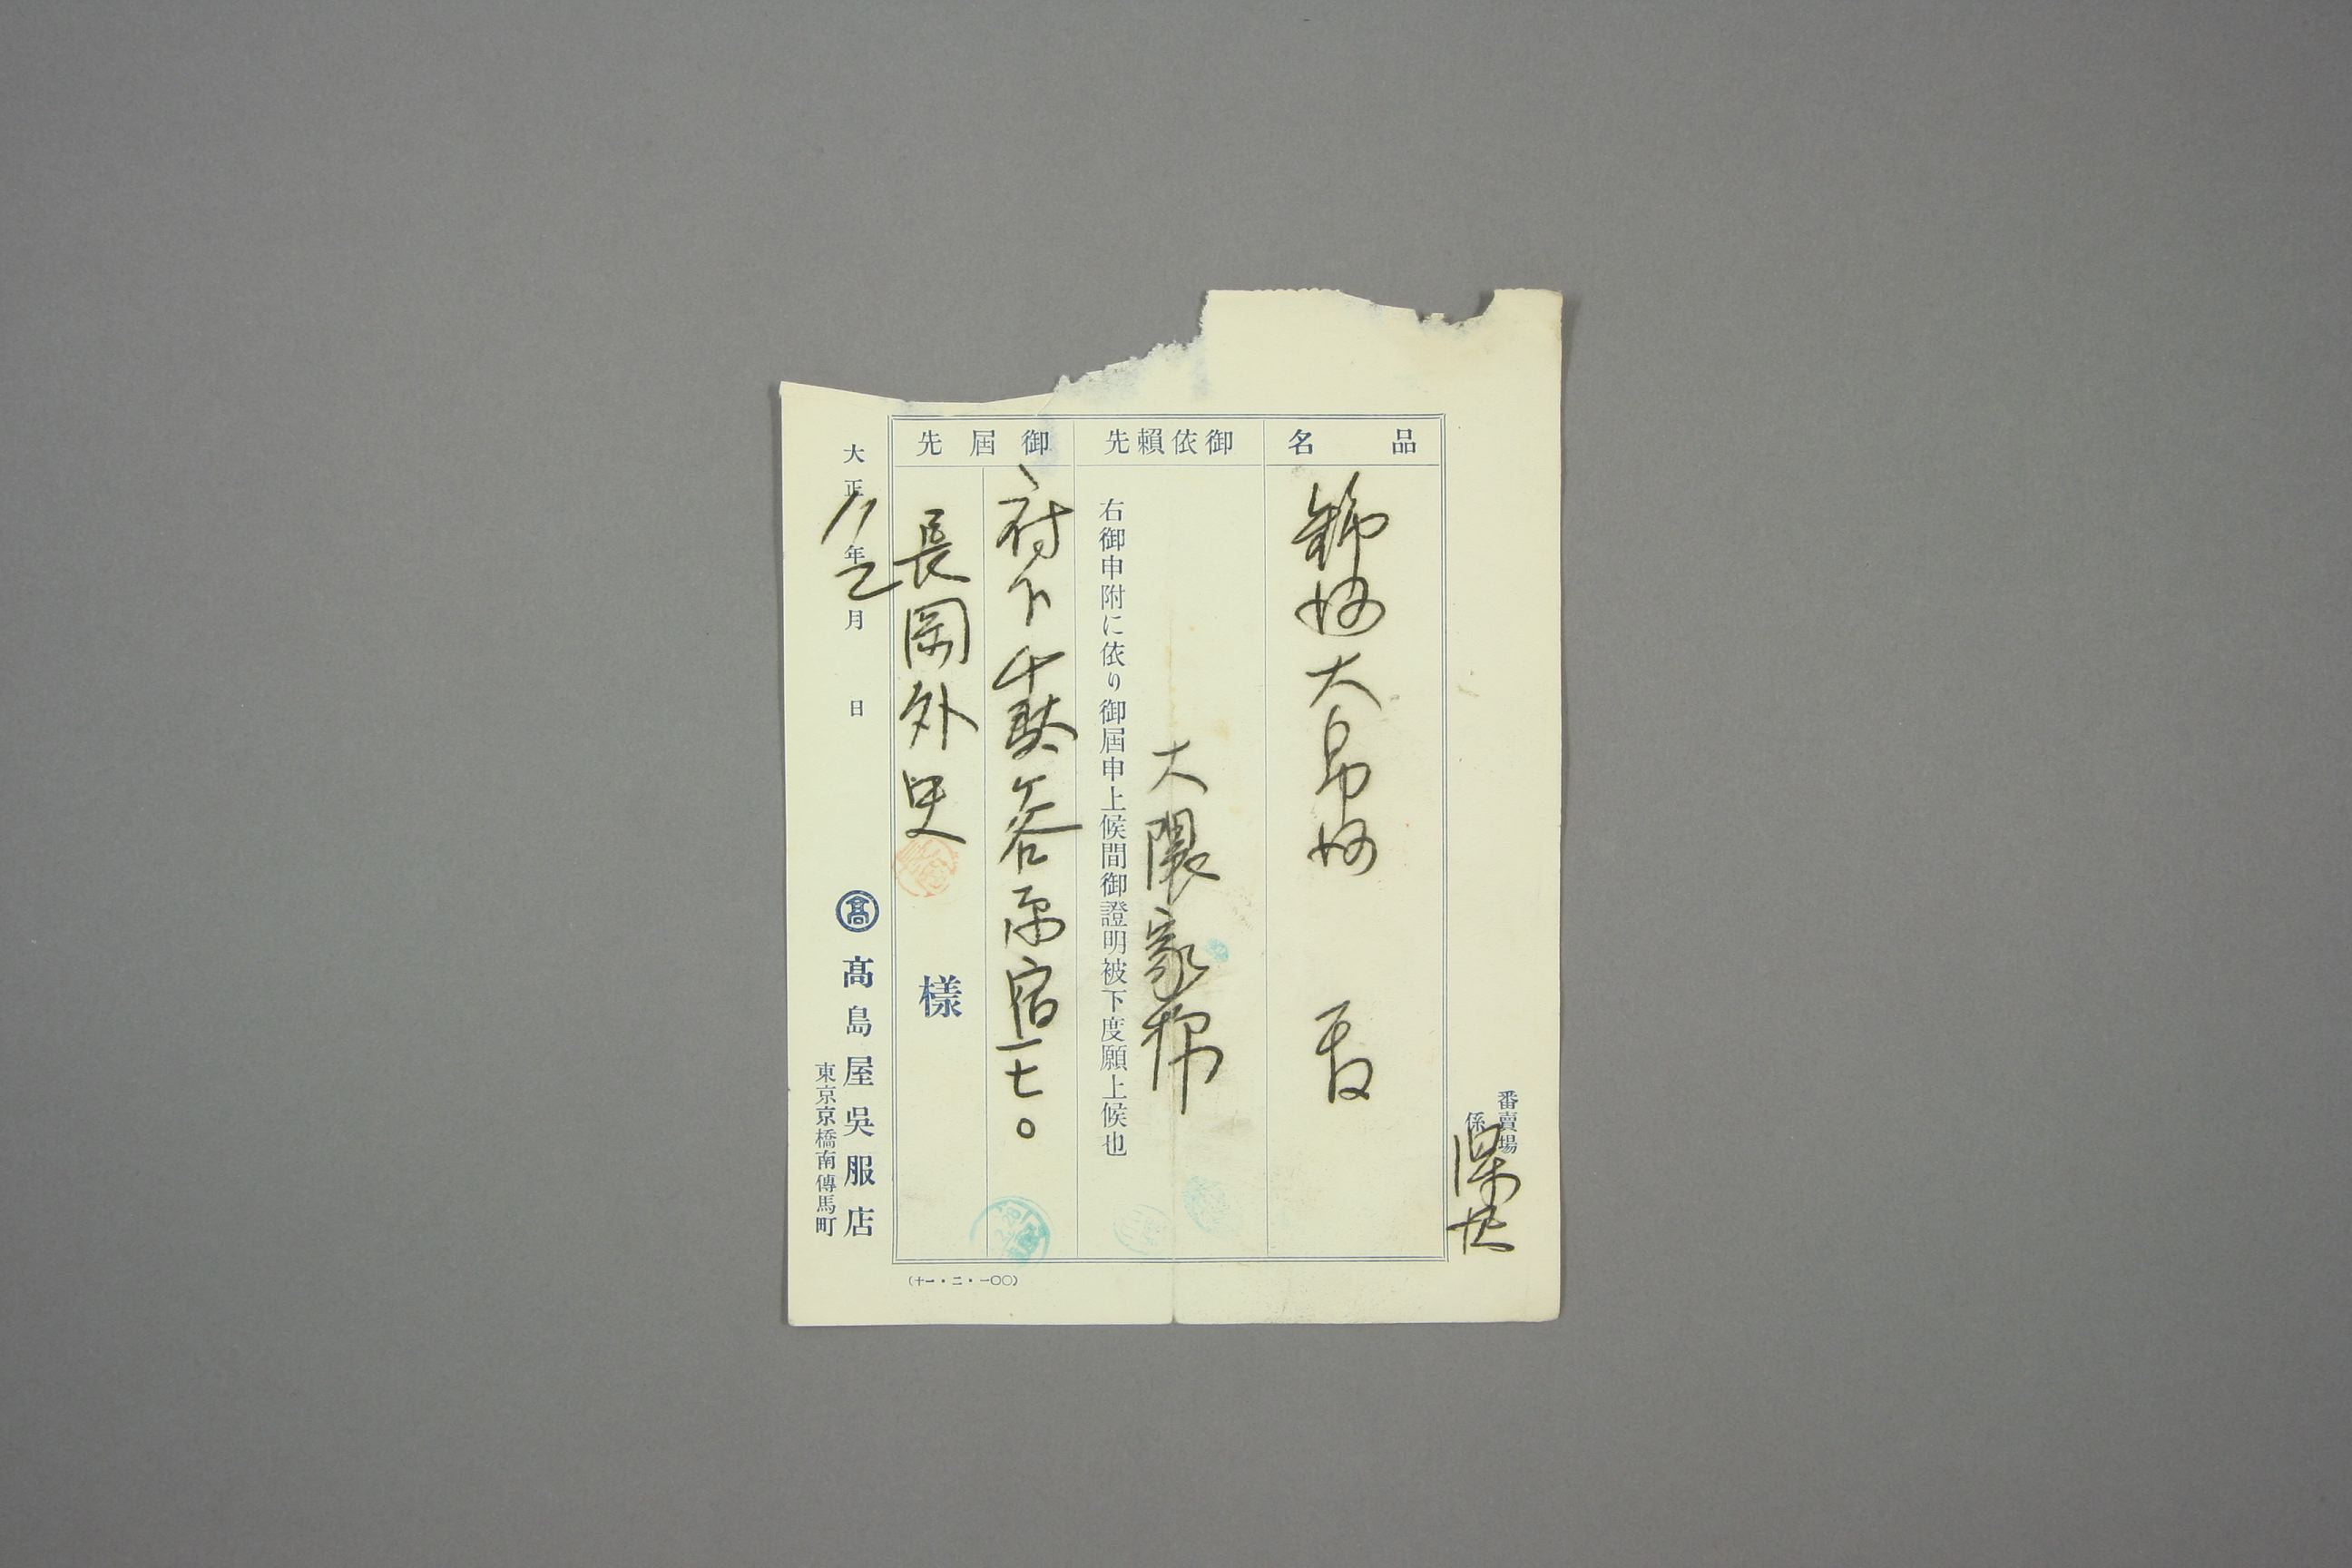 番賣場
係
品名
大
御依賴先
大隈家様
右御申附に依り御屆申上候間御證明被下度願上候也
御屆先
府下千駄ヶ谷原宿一七〇
長岡外史
樣
大正11年2月日
髙
髙島屋吳服店
東京京橋南傳馬町
(十一・二・一〇〇)